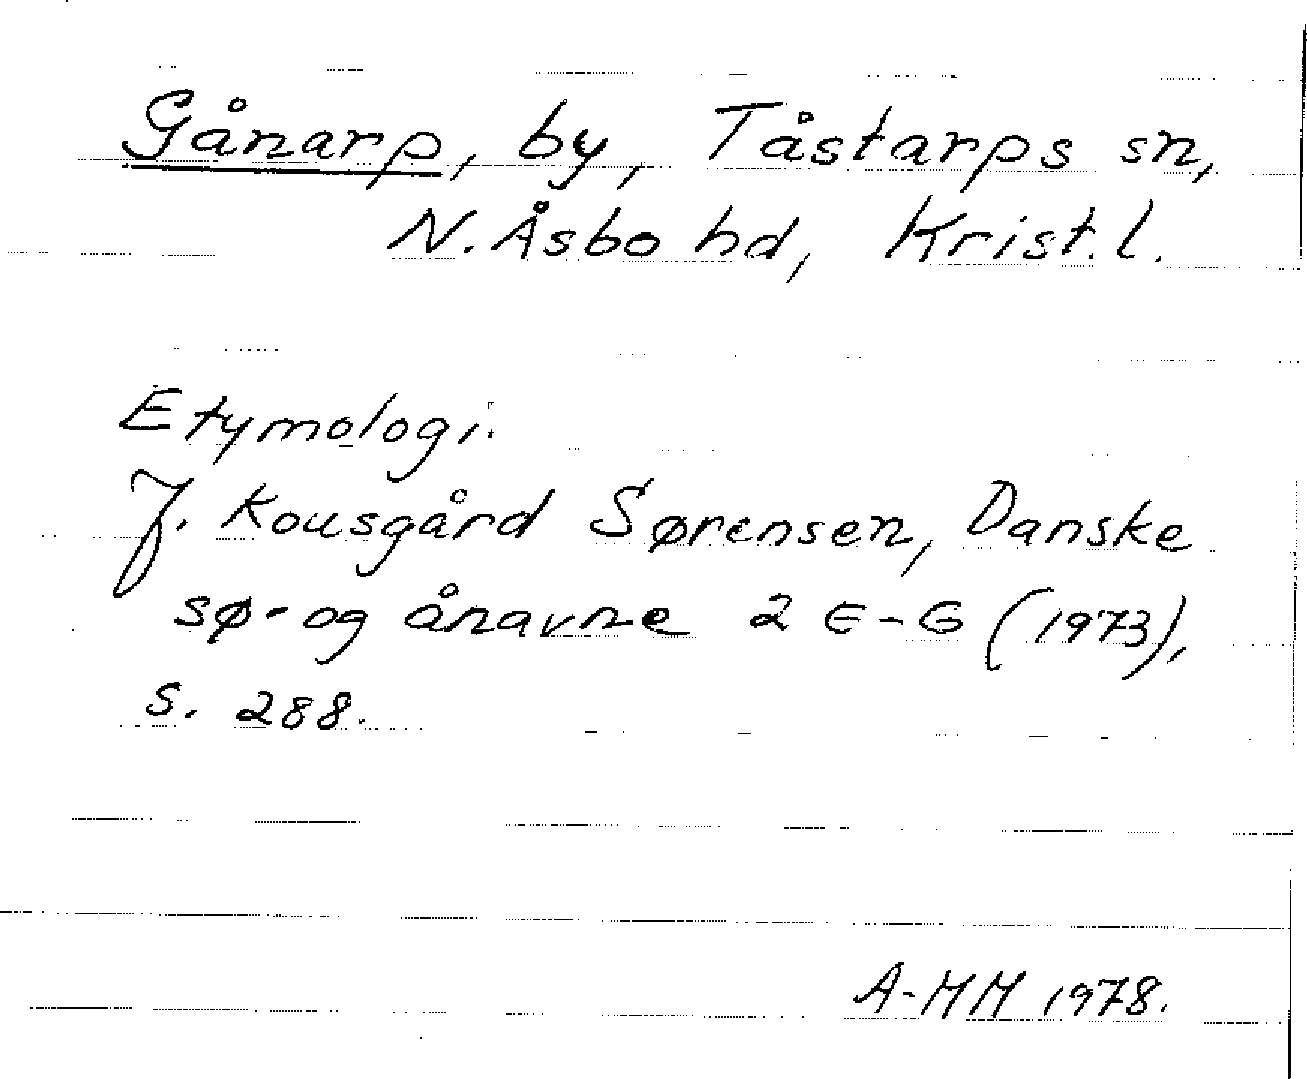 Gånarp, by, Tåstarps sn,
N. Åsbo hd, Krist. l.
Etymologi:
J. Kousgård Sørensen, Danske
sø- og ånavne 2 E-G (1973),
s. 288.
A-MM 1978.